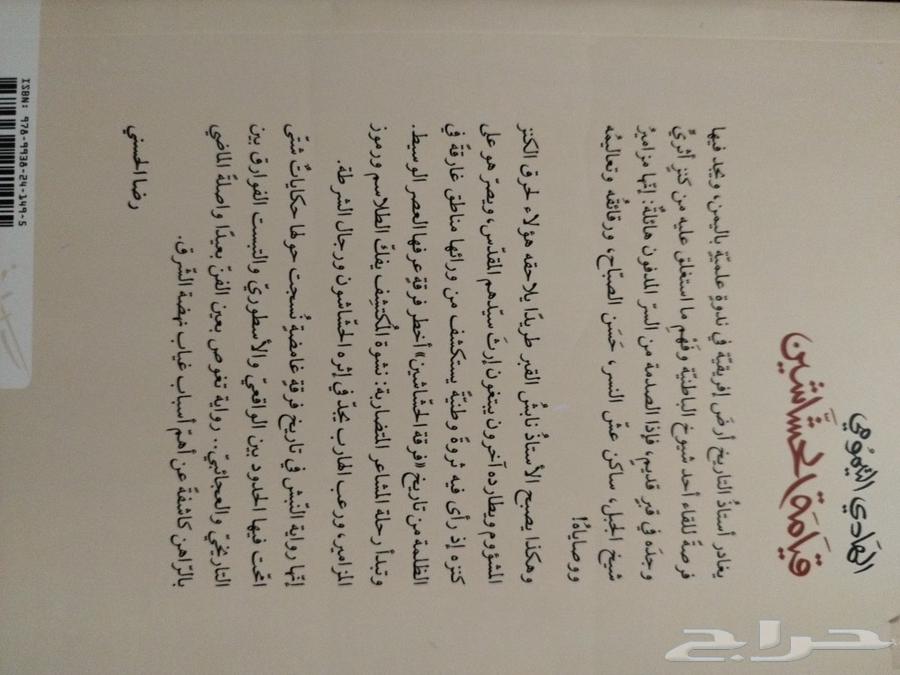 الهَادي التّيمُومي
قيَامَة الحَشَّاشين
يغادر أستاذُ التاريخ أرضَ إفريقيّة في ندوةٍ علميّةٍ باليمن، ويجد فيها
فرصةً للقاء أحد شيوخ الباطنيّة وفَهْمِ ما استغلق عليه من كنزٍ أثريٍّ
وجدَه في قبرٍ قديم، فإذا الصدمة من السرّ المدفون هائلةٌ: إنّها مزاميرُ
شيخ الجبل، ساكن عشّ النسر، حَسَن الصبّاح، ورقائقُه وتعاليمُه
ووصاياهُ!
وهكذا يصبح الأستاذُ نابشُ القبر طريدًا يلاحقه هؤلاء لحرق الكنز
المشؤوم ويطارده آخرون يبتغون إرثَ سيّدهم المقدّس، ويصرّ هو على
كنزٍ إذ رأى فيه ثروةً وطنيّةً يستكشف من ورائها مناطق غارقةً في
الظلمة من تاريخ «فرقة الحشّاشين» أخطر فرقةٍ عرفها العصر الوسيط.
وتبدأ رحلة المشاعر المتضاربة: نشوة المُكتشِف يفكّ الطلاسم ورموز
المزامير، ورعب الهارب يجدّ في إثره الحشّاشون ورجال الشرطة.
إنّها رواية النّبش في تاريخ فرقة غامضةٍ نُسجت حولها حكاياتٌ شتّى
امّحت فيها الحدود بين الواقعيّ والأسطوريّ والتبست الفوارق بين
التاريخيّ والعجائبيّ.. رواية تغوص بعين الفنّ بعيدًا واصلةً الماضي
بالرّاهن كاشفةً عن أهمّ أسباب غياب نهضة الشّرق.
رضا الحسني
ISBN: 978-9938-24-149-5
حراج